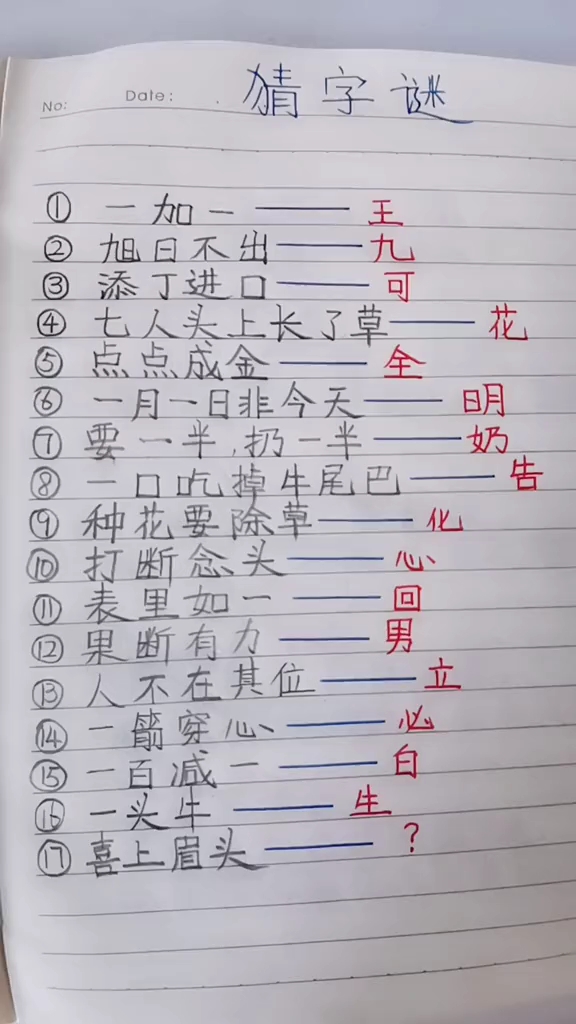 No:
Date:
猜字谜
① 一加一——王
② 旭日不出——九
③ 添丁进口——可
④ 七人头上长了草——花
⑤ 点点成金——全
⑥ 一月一日非今天——明
⑦ 要一半,扔一半——奶
⑧ 一口吃掉牛尾巴——告
⑨ 种花要除草——化
⑩ 打断念头——心
⑪ 表里如一——回
⑫ 果断有力——男
⑬ 人不在其位——立
⑭ 一箭穿心——必
⑮ 一百减一——白
⑯ 一头牛——生
⑰ 喜上眉头——?